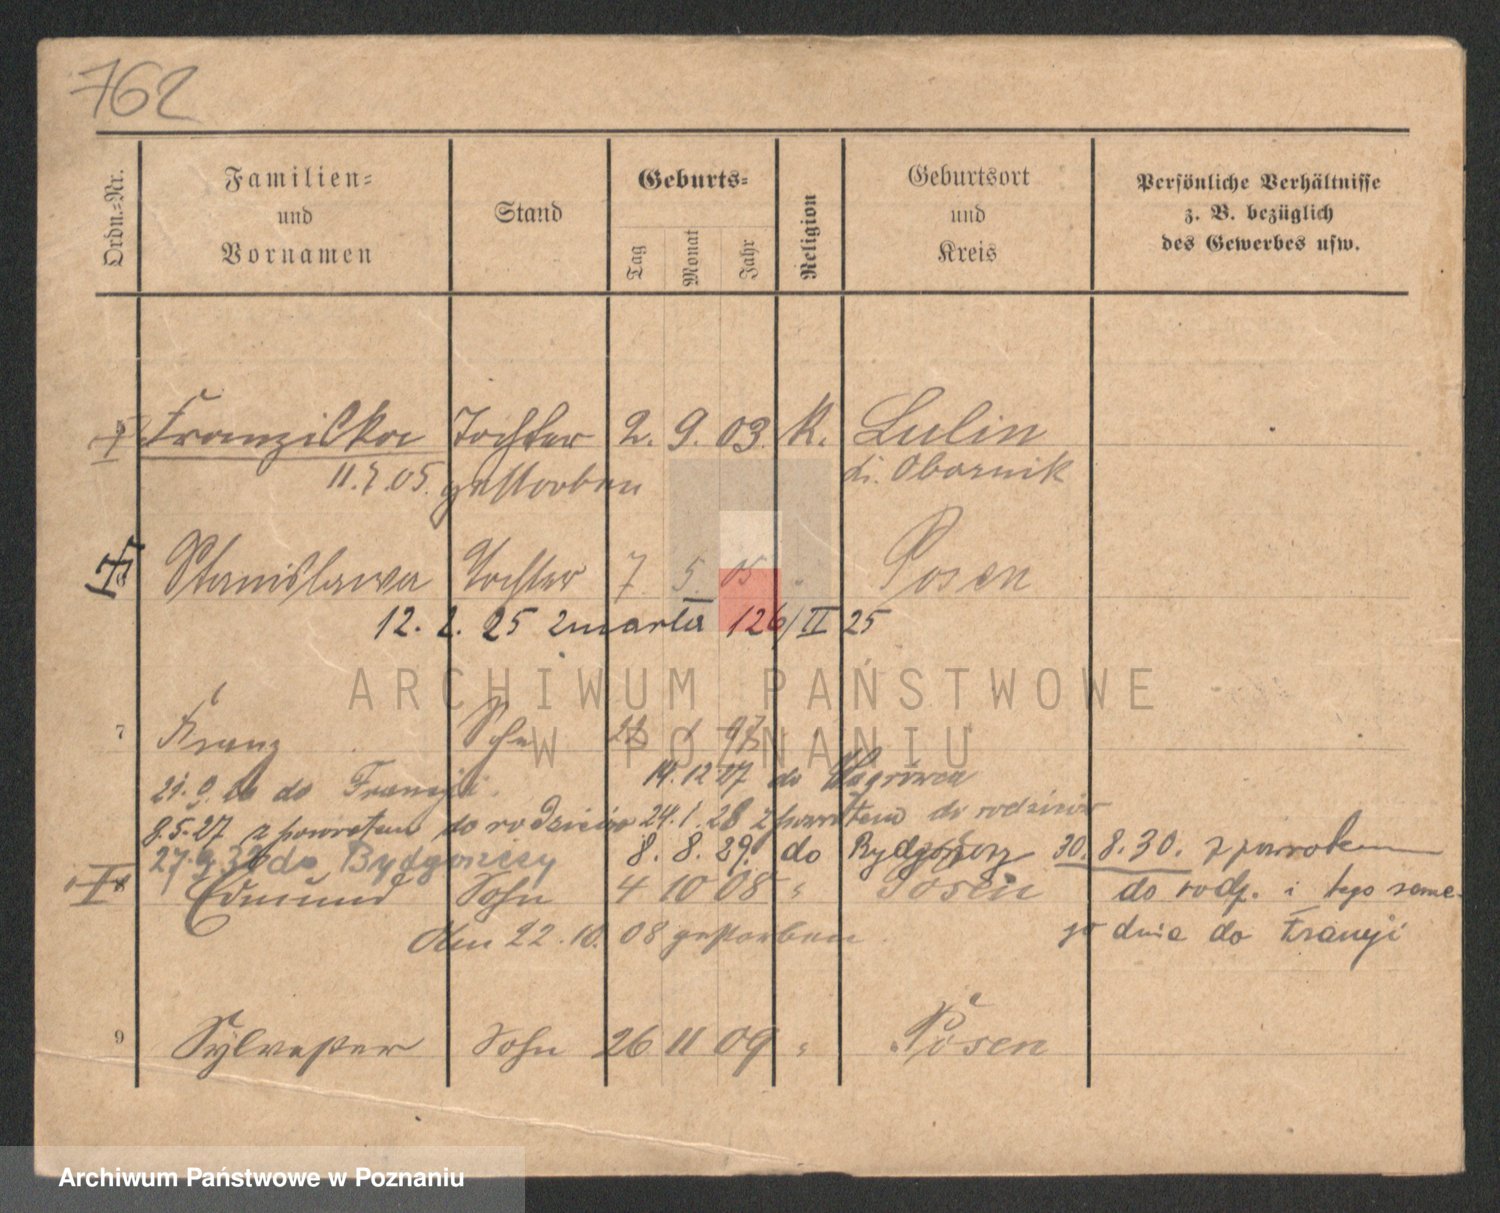 762
Ordn.-Nr.
Familien-
und
Vornamen
Stand
Geburts-
Tag
Monat
Jahr
Religion
Geburtsort
und
Kreis
Persönliche Verhältnisse
z. B. bezüglich
des Gewerbes usw.
Franziska Tochter 2. 9. 03. K. Lulin
11.7.05. gestorben Obornik
Stanisława Tochter 7 5 05 Posen
12. 2. 25 zmarła 126/II 25
7 Franz Sohn
ARCHIWUM PAŃSTWOWE
W POZNANIU
do Francji. 14.12 27 do Wągrowca
8.5.27 z powrotem do rodziców 24.1.28 z powrotem do rodziców
27.9.32 do Bydgoszczy 8. 8. 29. do Bydgoszcz 30. 8. 30. z powrotem
8 Edmund Sohn 4 10 08 " Posen do rodz. i tego same-
den 22.10. 08 gestorben go dnia do Francji
9 Sylvester Sohn 26 11 09 " Posen
Archiwum Państwowe w Poznaniu